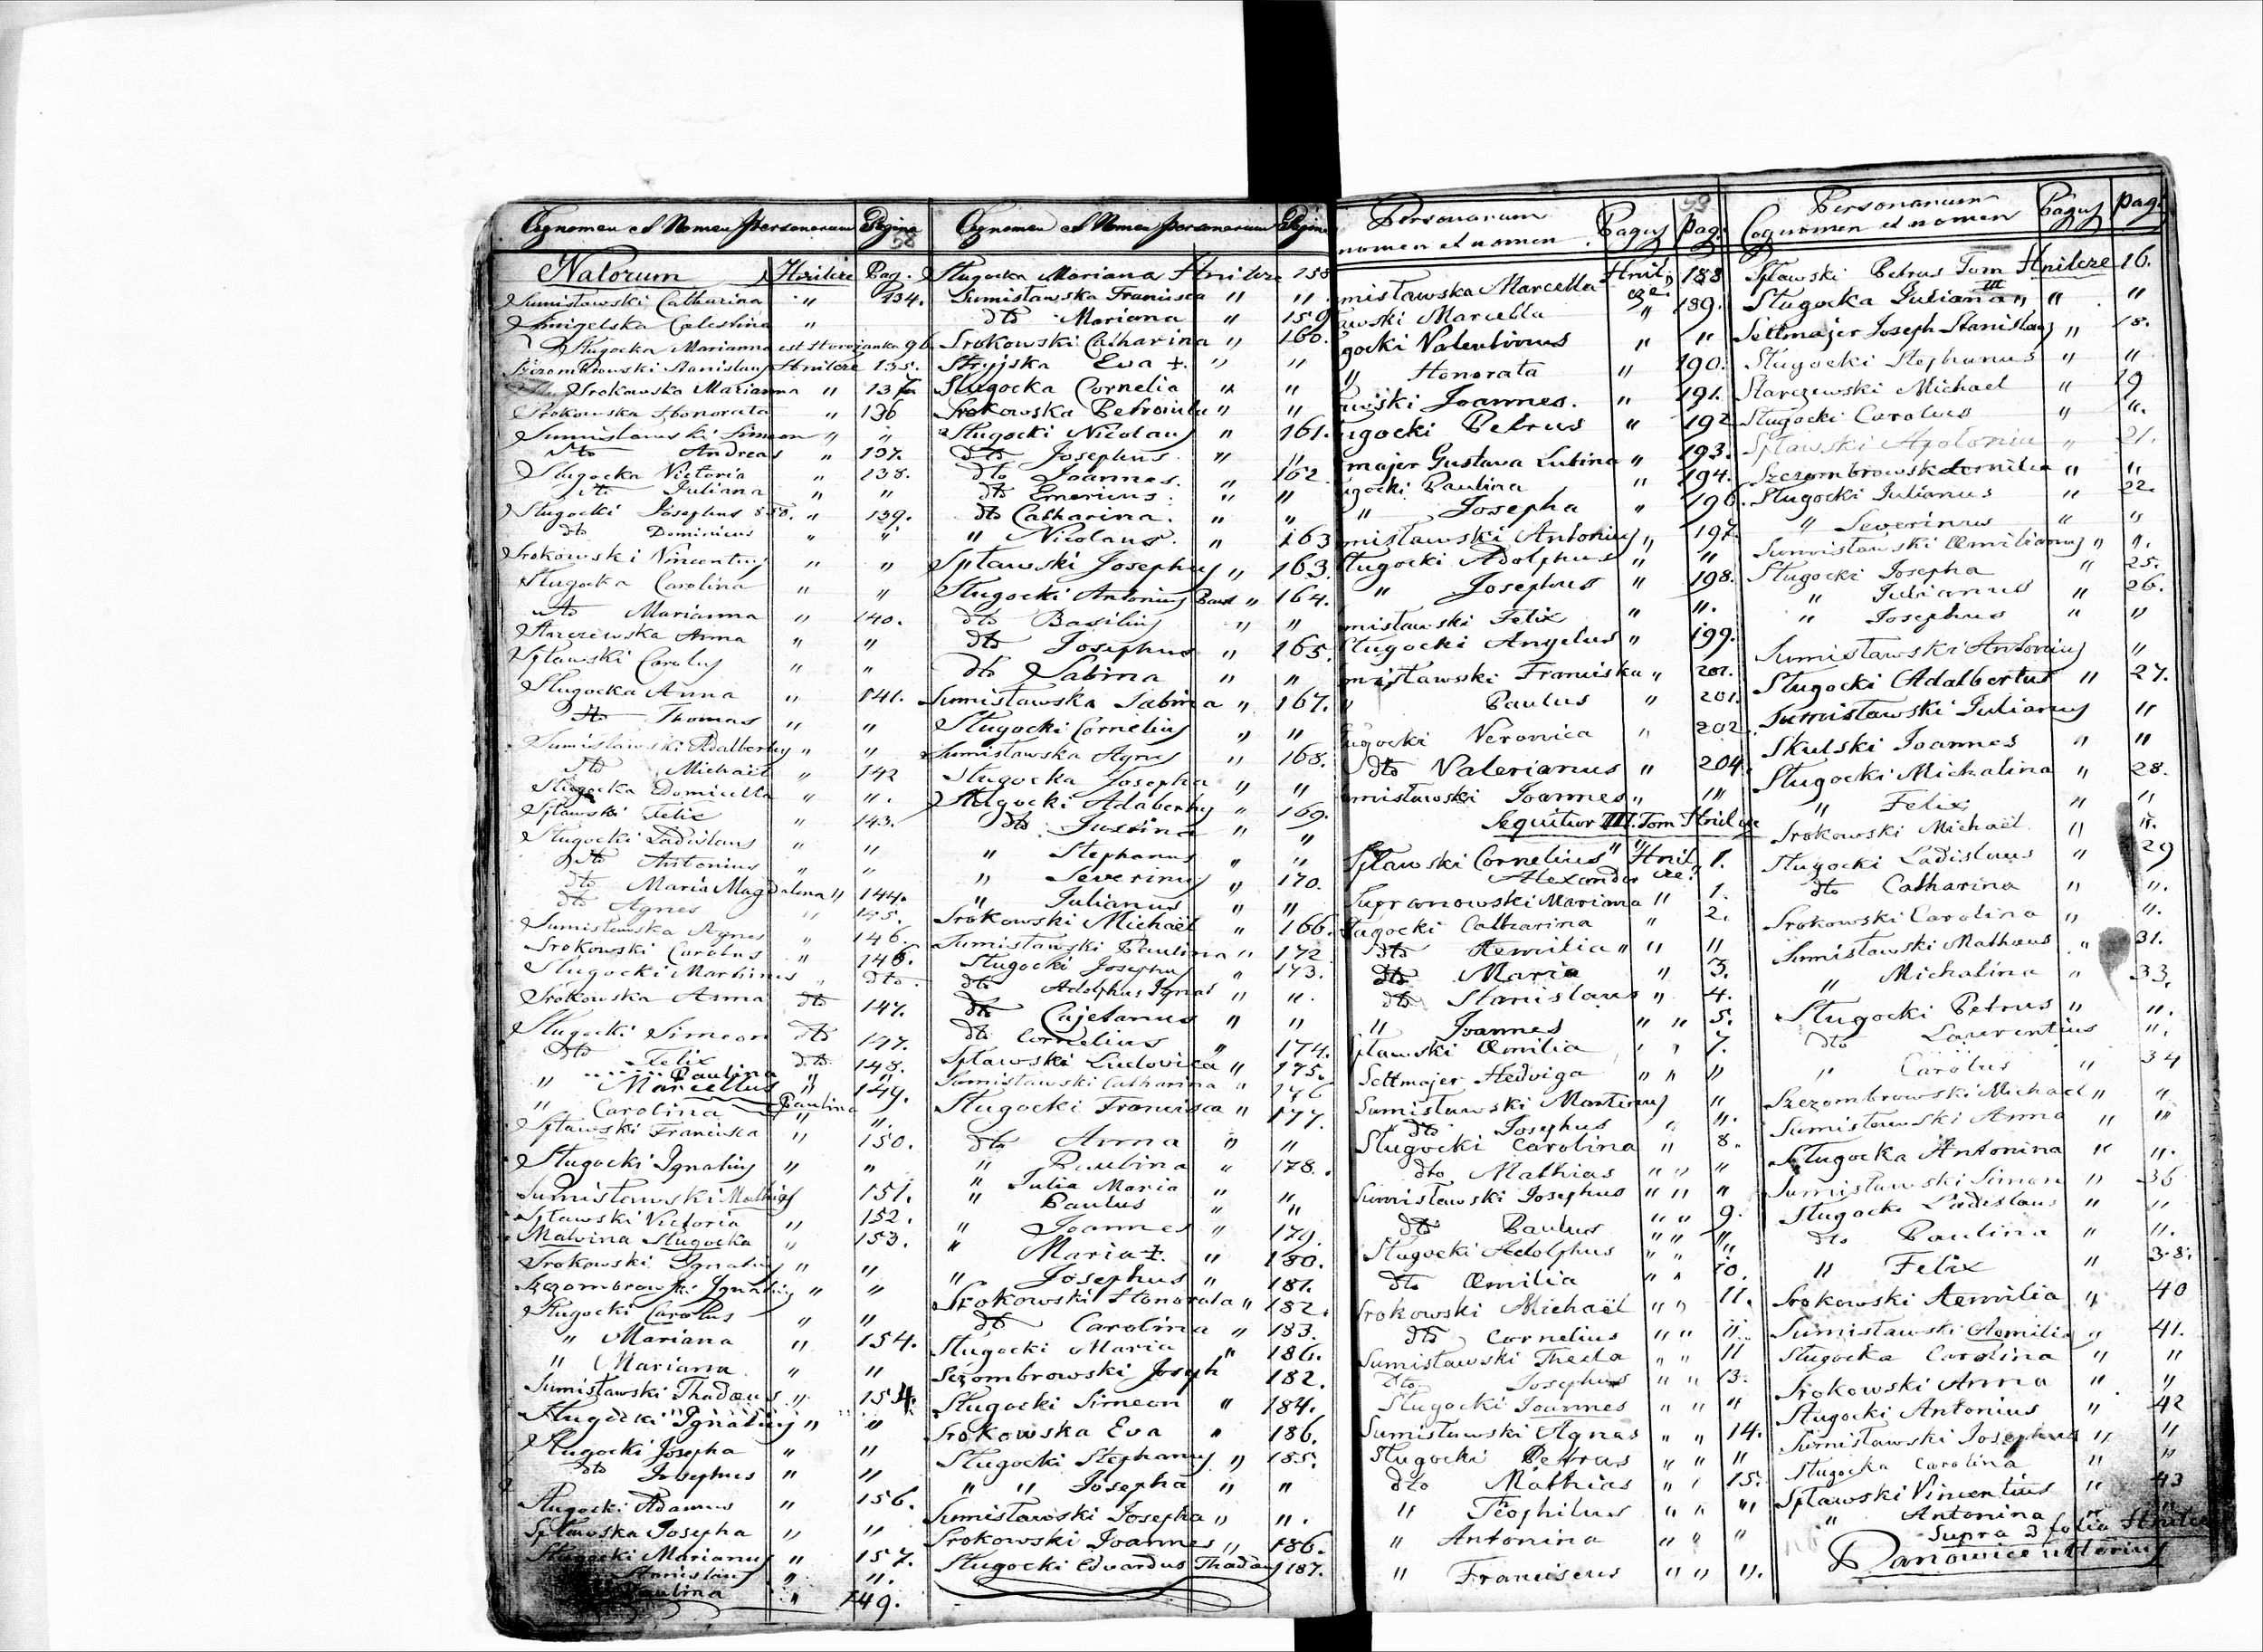 Cognomen et Nomen personarum Pagina
58
Natorum Hnilcze Pag.
Sumisławski Catharina " 134.
Smigelska Celestina "
Sługocka Marianna est Horozanka 96.
Szczombrowski Stanislaus Hnilcze 135.
Srokowska Marianna "
Srokowska Honorata " 136
Sumisławski Simeon " "
dto Andreas " 137.
Sługocka Victoria " 138.
dto Juliana " "
Sługocki Josephus " 139.
dto Dominicus " "
Srokowski Vincentius " "
Sługocka Carolina " "
dto Marianna " 140.
Starczewska Anna " "
Spławski Carolus " "
Sługocka Anna " 141.
dto Thomas " "
Sumisławski Adalbertus " "
dto Michaël " 142
Sługocka Domicella " ".
Spławski Felix " 143.
Sługocki Ladislaus " "
dto Antonius " "
dto Maria Magdalena " 144.
dto Agnes " 145.
Sumisławska Agnes " 146.
Srokowski Carolus " 146.
Sługocki Martinus " dto
Srokowska Anna dto 147.
Sługocki Simeon dto 147.
dto Felix dto 148.
Paulina " "
" Marcellus " 149.
" Carolina Paulina " ".
Spławski Francisca " 150.
Sługocki Ignatius " "
Sumisławski Mathias 151.
Spławski Victoria " 152.
Malvina Sługocka " 153.
Srokowski Ignatius " "
Szczombrowski Ignatius " "
Sługocki Carolus " "
" Mariana " 154.
" Mariana " "
Sumisławski Thadæus " 154.
Sługocki Ignatius " "
Sługocki Josepha " "
dto Josephus " "
Sługocki Adamus " 156.
Spławska Josepha " "
Sługocki Marianus " 157.
Stanislaus " ".
Paulina " 149.
Cognomen et Nomen personarum Pagina
Sługocka Mariana Hnilcze 158
Sumisławska Francisca " ".
dto Mariana " 159
Srokowski Catharina " 160.
Stryjska Eva +. " "
Sługocka Cornelia " "
Srokowska Petronela " "
Sługocki Nicolaus " 161.
dto Josephus " "
dto Joannes. " 162
dto Emericus. " "
dto Catharina. " "
" Nicolaus. " 163
Spławski Josephus " 163.
Sługocki Antonius " 164.
dto Basilius " "
dto Josephus " 165.
dto Sabina " "
Sumisławska Sabina " 167.
Sługocki Cornelius " "
Sumisławska Agnes " 168.
Sługocka Josepha " "
Sługocki Adalbertus " 169.
dto Justina " "
" Stephanus " "
" Severinus " 170.
" Julianus " "
Srokowski Michaël " 166.
Sumisławski Paulina " 172
Sługocki Josephus " 173.
dto Adolphus Ignas " ".
dto Cajetanus " "
dto Cornelius " 174.
Spławski Ludovica " 175.
Sumisławski Catharina " 176
Sługocki Francisca " 177.
dto Anna " "
" Paulina " 178.
" Julia Maria " "
" Paulus " "
" Joannes " 179.
" Maria +. " 180.
" Josephus " 181.
Srokowski Honorata " 182.
dto Carolina " 183.
Sługocki Maria " 186.
Szczombrowski Joseph 182.
Sługocki Simeon " 184.
Srokowska Eva " 186.
Sługocki Stephanus " 185.
" " Josepha " "
Sumisławski Josepha " ".
Srokowski Joannes " 186.
Sługocki Eduardus Thadæus 187.
Personarum
nomen et nomen Pagus pag.
59
misławska Marcella Hnilcze 188
awski Marcella " 189.
gocki Valentinus " "
" Honorata " 190.
awski Joannes. " 191.
ugocki Petrus " 192
majer Gustava Lubina " 193.
ugocki Paulina " 194.
" Josepha " 196.
misławski Antonius " 197.
Sługocki Adolphus " "
" Josephus " 198.
misławski Felix " ".
Sługocki Angelus " 199.
misławski Franciska "
" Paulus " 201.
ugocki Veronica " 202.
dto Valerianus " 204.
misławski Joannes " "
Sequitur III. Tom Hnilcze
Spławski Cornelius Hnilcze 1.
Alexander
Supranowski Mariana " 1.
Sługocki Catharina " 2.
dto Aemilia " " "
dto Maria " 3.
dto Stanislaus " 4.
" Joannes " " 5.
Spławski Æmilia " " 7.
Settmajer Hedviga " " "
Sumisławski Martinus "
dto Josephus " ".
Sługocki Carolina " 8.
dto Mathias " " "
Sumisławski Josephus " " "
dto Paulus " " 9.
Sługocki Adolphus " " "
dto Æmilia " " 10.
Srokowski Michaël " " 11.
dto Cornelius " " 11.
Sumisławski Thecla " " 11
dto Josephus " " 13.
Sługocki Joannes " " "
Sumisławski Agnes " " 14.
Sługocki Petrus " " "
dto Mathias " " 15.
" Teophilus " " "
" Antonina " " "
" Franciscus " " ".
Personarum
Cognomen et nomen Pagus pag.
Spławski Petrus Tom III Hnilcze 16.
Sługocka Juliana " " "
Settmajer Joseph Stanislaus " 18.
Sługocki Stephanus " "
Starczewski Michael " 19
Sługocki Carolus " ".
Spławski Apolonia " 21.
Szczombrowski Cornelia " "
Sługocki Julianus " 22.
" Severinus " "
Sumisławski Æmilianus " ".
Sługocki Josepha " 25.
" Julianus " 26.
" Josephus " "
Sumisławski Antonius "
Sługocki Adalbertus " 27.
Sumisławski Julianus "
Skulski Joannes " "
Sługocki Michalina " 28.
" Felix " "
Srokowski Michaël " ".
Sługocki Ladislaus " 29
dto Catharina " ".
Srokowski Carolina " ".
Sumisławski Mathæus " 31.
" Michalina " 33.
Sługocki Petrus " ".
dto Laurentius ".
" Carolus " 34
Szczombrowski Michael " "
Sumisławski Anna " "
Sługocka Antonina " ".
Sumisławski Simon " 36
Sługocki Ladislaus " "
dto Paulina " ".
" Felix " 38.
Srokowski Aemilia " 40
Sumisławski Aemilia " 41.
Sługocka Carolina " "
Srokowski Anna " "
Sługocki Antonius " 42
Sumisławski Josephus " "
Sługocka Carolina " "
Spławski Vincentius " 43
" Antonina " "
Supra 3 folia Hnilcze
Panowice ulterius